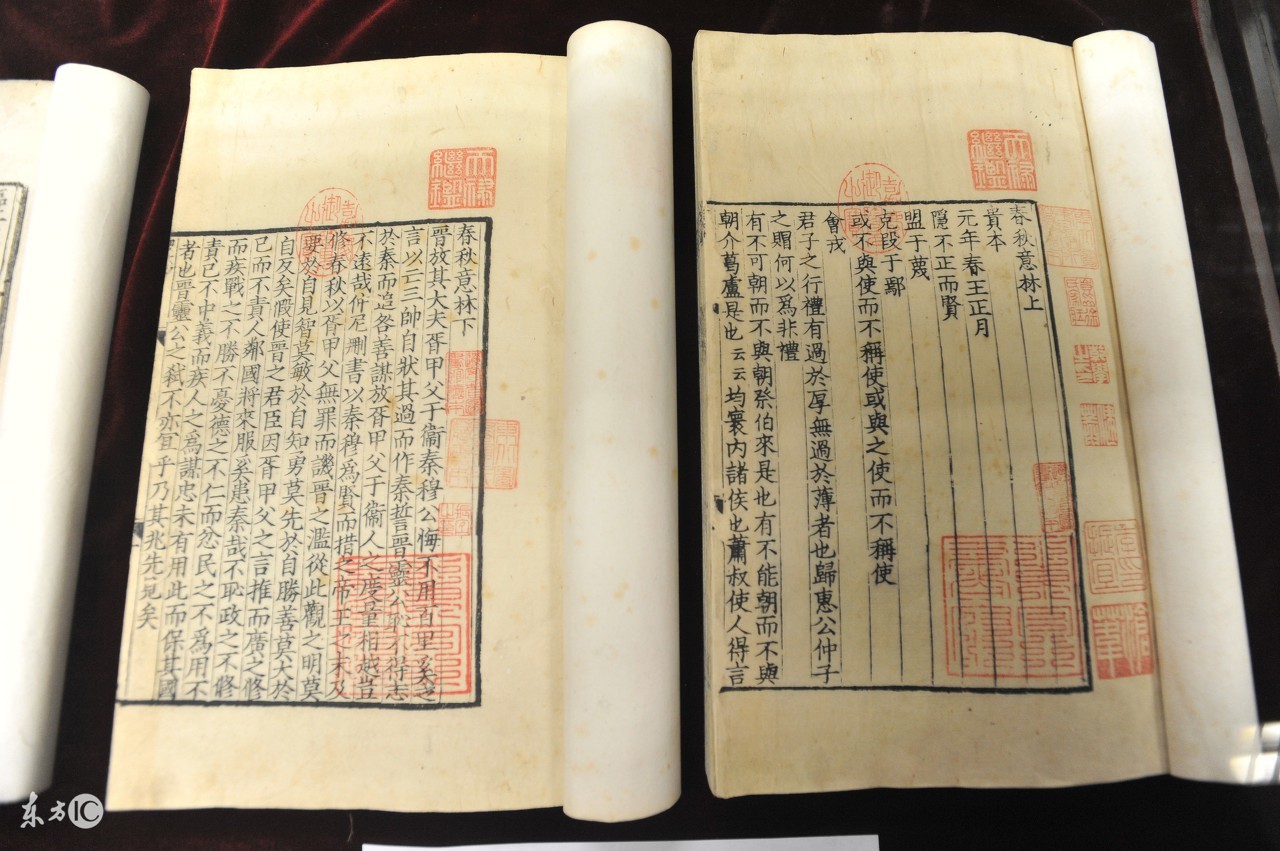 春秋意林上
貴本
元年春王正月
隱不正而賢
盟于蔑
克段于鄢
或不與使而不稱使或與之使而不稱使
會戎
君子之行禮有過於厚無過於薄者也歸惠公仲子
之賵何以爲非禮
有不可朝而不與朝祭伯來是也有不能朝而不與
朝介葛盧是也云云均寰内諸侯也蕭叔使人得言
春秋意林下
晉放其大夫胥甲父于衞秦穆公悔不用百里奚之
言以亡三帥自狀其過而作秦誓晉靈公不得志
於秦而追咎善謀放胥甲父于衞人之度量相越豈
不遠哉仲尼刪書以秦穆爲賢而措之帝王之末及
修春秋以胥甲父無罪而譏晉之濫從此觀之明莫
要於自見智莫敏於自知勇莫先於自勝善莫大於
自反矣假使晉之君臣因胥甲父之言推而廣之修
已而不責人鄰國將來服奚患秦哉不恥政之不修
而疾戰之不勝不憂德之不仁而忿民之不爲用不
責已不中義而疾人之爲謀忠未有用此而保其國
者也晉靈公之弑不亦宜乎乃其兆先見矣
天祿
繼鑑
天祿
繼鑑
东方IC